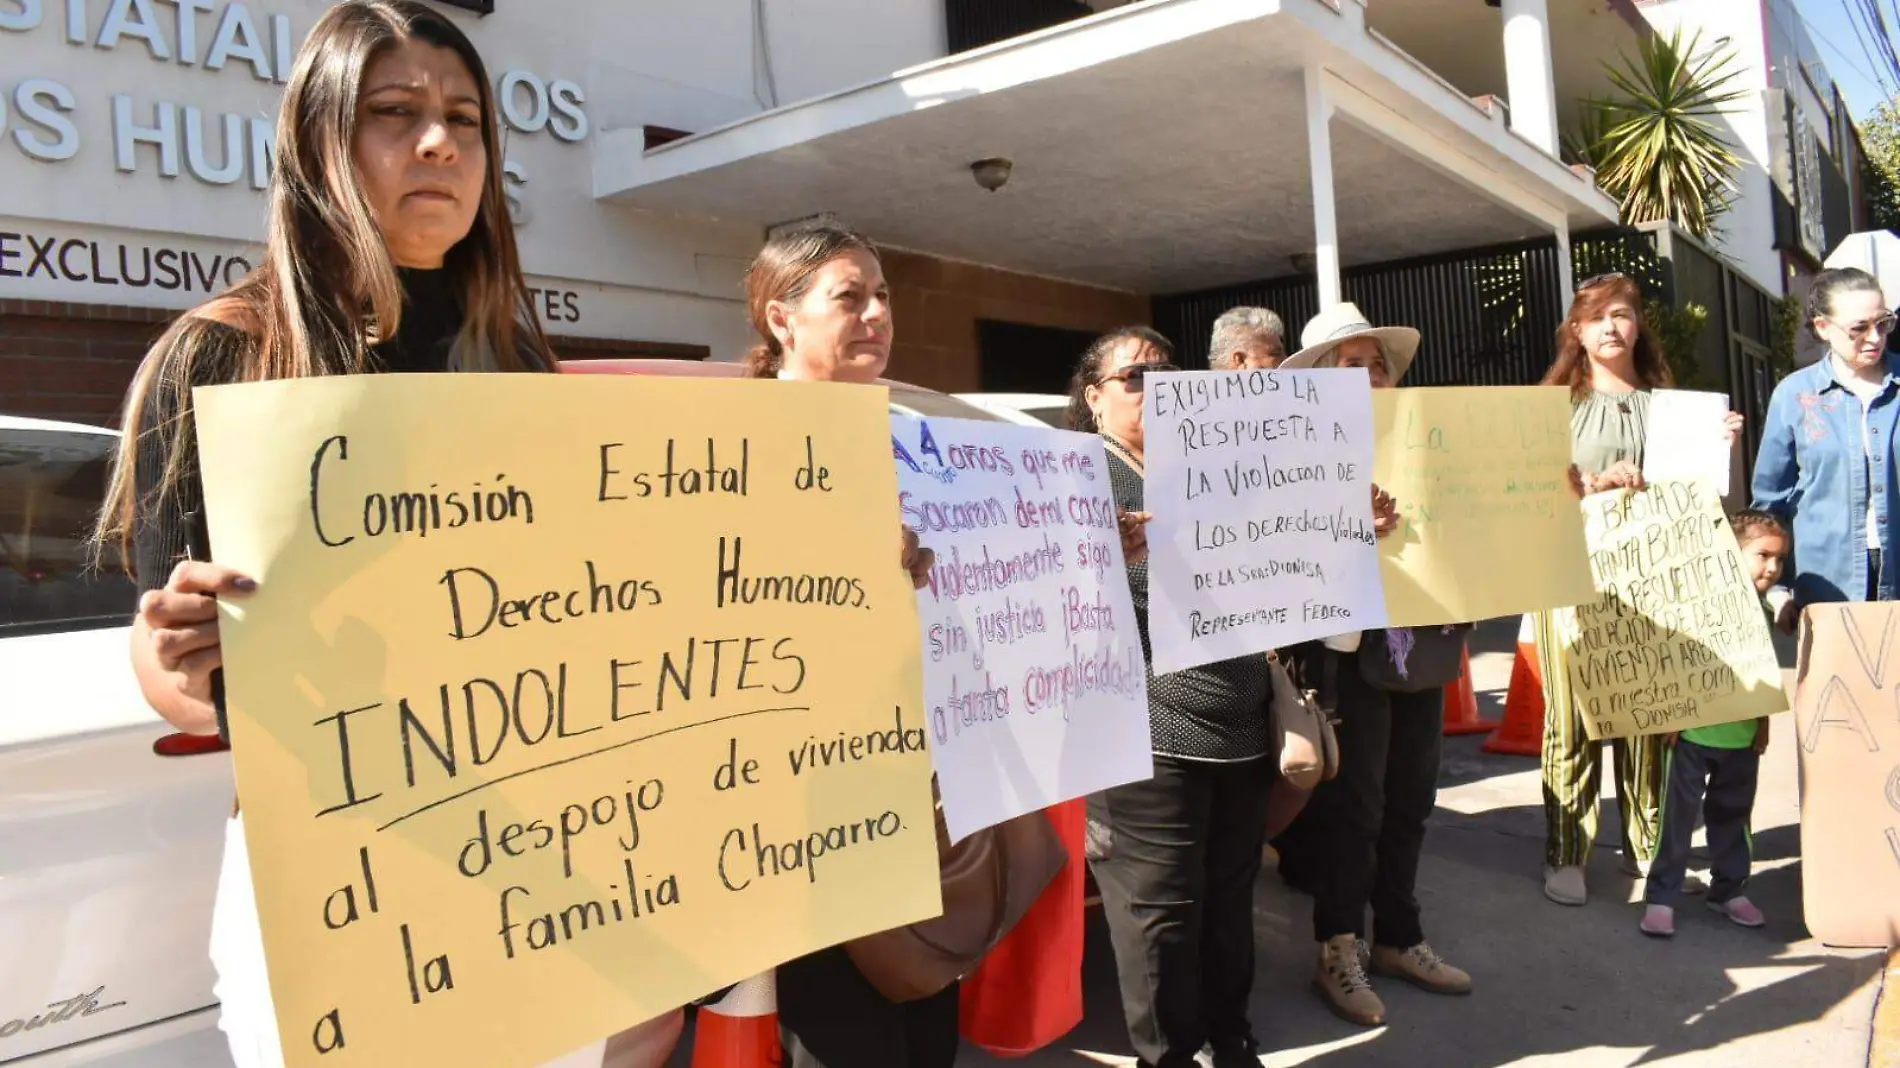 STATAL
LOS
OS HUM
S
EXCLUSIVO
TES
Comisión Estatal de
Derechos Humanos.
INDOLENTES
al despojo de vivienda
a la familia Chaparro.
A 4 años que me
Sacaron de mi casa
violentamente sigo
sin justicia ¡Basta
a tanta complicidad!
EXIGIMOS LA
RESPUESTA A
LA VIOLACION DE
LOS DERECHOS Violados
DE LA SRA: DIONISA
REPRESENTANTE FEDECO
La
BASTA DE
TANTA BURRO-
RESUELVE LA
VIOLACION DE DESPOJO
VIVIENDA ARBITRARIA
a nuestra
DIONISIA
V
A